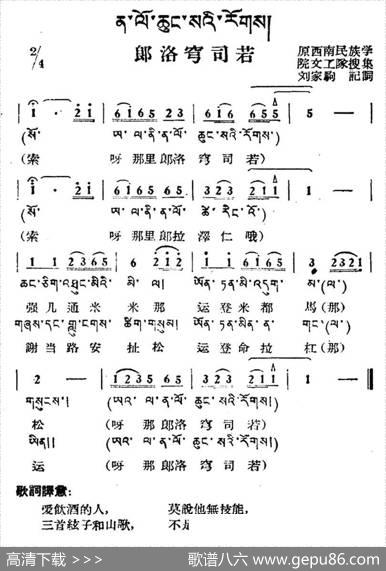 ན་ལོ་ཆུང་སའི་རོགས།
郎洛穹司若
2/4
原西南民族学
院文工隊搜集
刘家駒 記詞
i · 2i | 6165 23 | 616 655 | 5 — |
(སོ་ ཨ་ལ་ནི་ན་ལོ་ ཆུང་སའི་རོགས།)
(索 呀那里郎洛 穹司若)
i · 2i | 6165 45 | 323 211 | 1 — |
(སོ་ ཨ་ལ་ནི་ན་ལོ་ ཚེ་རིང་འོ་)
(索 呀那里郎拉 澤仁哦)
11 2365 | 6 212 | 1656 165 | 3 2321 |
ཆང་ཅིག་འཐུང་མིའི་ མི་ལ། ཡོན་ཏན་མི་འདུག་ མ་(ལ་)
强几通米 米那 运登米都 馬(那)
གཞས་དང་གླུ་དབྱངས་ ཚིག་གསུམ། ཡོན་ཏན་མིན་ན་ གང་(ལ་)
謝当路安 扯松 运登命拉 杠(那)
2 — | 1235 65 | 323 211 | 1 — ‖
གསུངས། (ཨའ་ལ་ན་ལོ་ ཆུང་སའི་རོགས།)
松 (呀那郎洛 穹司若)
ཡིན།། (ཨའ་ལ་ན་ལོ་ ཆུང་སའི་རོགས།)
运 (呀那郎洛 穹司若)
歌詞譯意：
愛飲酒的人， 莫說他無技能，
三首絃子和山歌， 不
高清下载 >>> 歌谱八六 www.gepu86.com